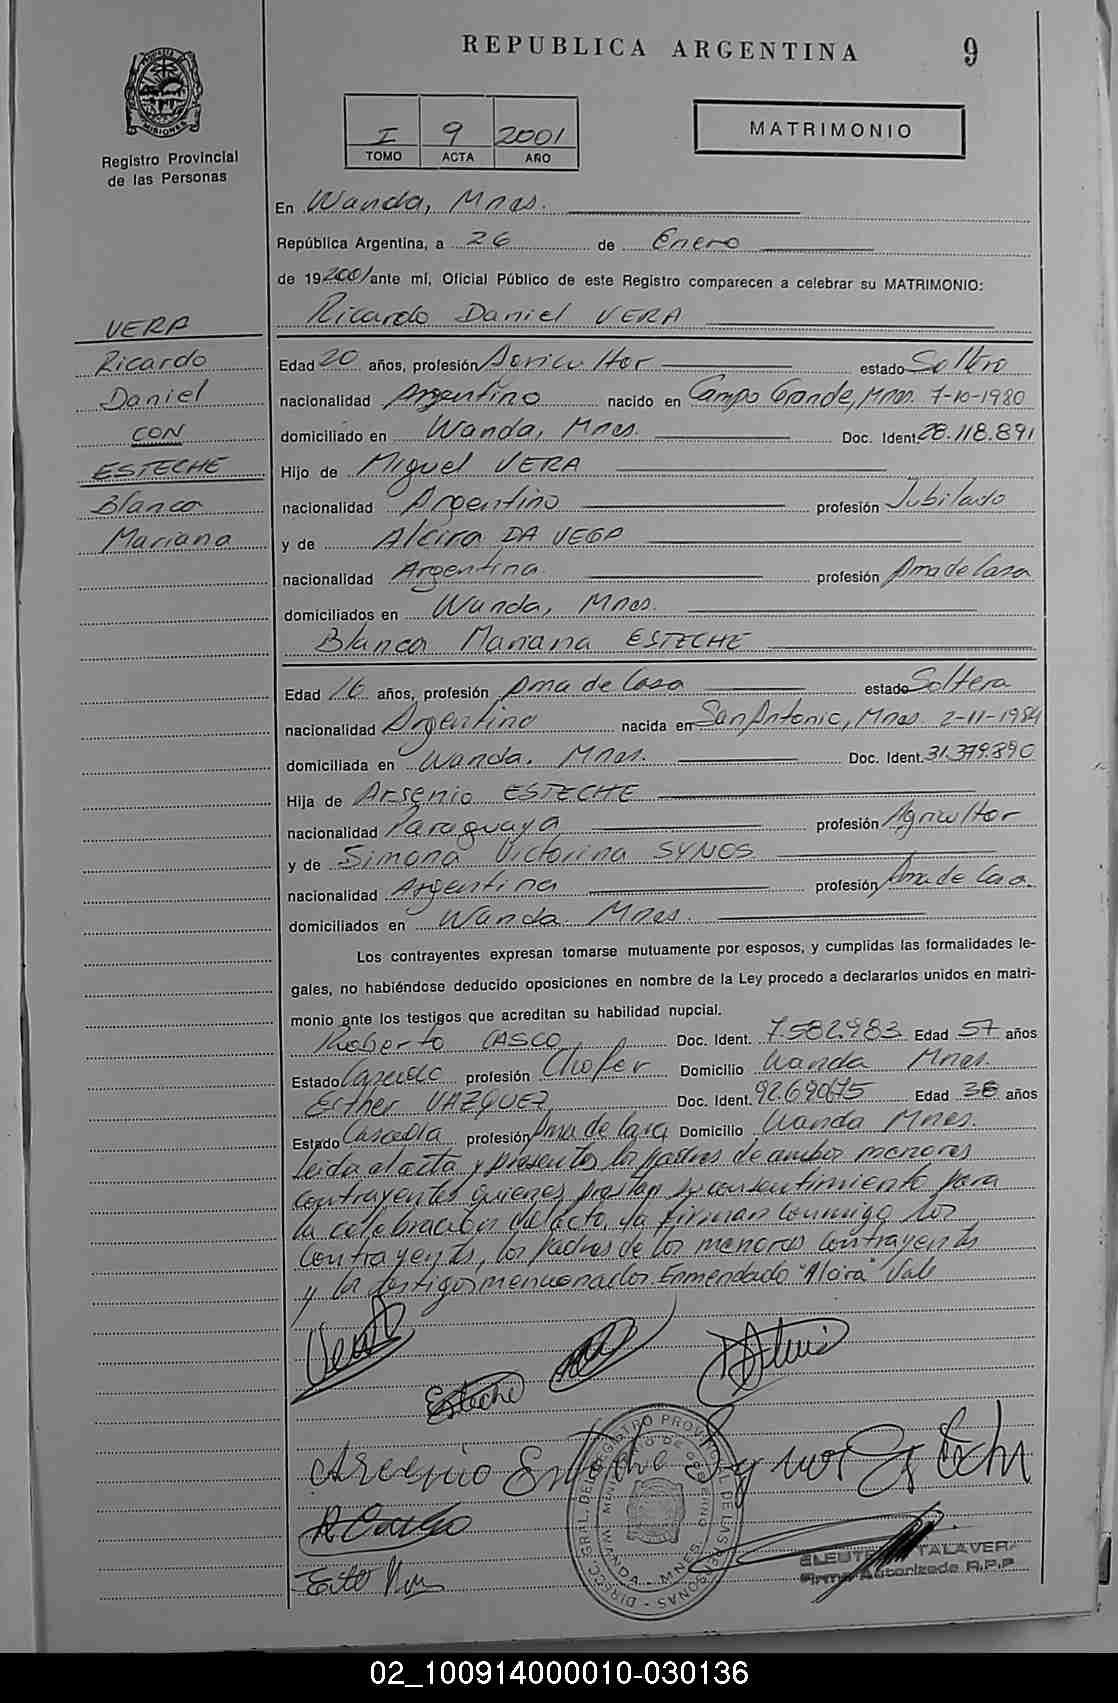 REPUBLICA ARGENTINA 9
MISIONES
Registro Provincial
de las Personas
I 9 2001
TOMO ACTA AÑO
MATRIMONIO
En Wanda, Mnes.
República Argentina, a 26 de Enero
de 19 2001 ante mí, Oficial Público de este Registro comparecen a celebrar su MATRIMONIO:
Ricardo Daniel VERA
VERA
Ricardo
Daniel
CON
ESTECHE
Blanca
Mariana
Edad 20 años, profesión Agricultor estado Soltero
nacionalidad Argentino nacido en Campo Grande, Mnes. 7-10-1980
domiciliado en Wanda, Mnes. Doc. Ident. 28.118.891
Hijo de Miguel VERA
nacionalidad Argentino profesión Jubilado
y de Alcira DA VEGA
nacionalidad Argentina profesión Ama de Casa
domiciliados en Wanda, Mnes.
Blanca Mariana ESTECHE
Edad 16 años, profesión Ama de Casa estado Soltera
nacionalidad Argentino nacida en San Antonio, Mnes. 2-11-1984
domiciliada en Wanda, Mnes. Doc. Ident. 31.379.890
Hija de Arsenio ESTECHE
nacionalidad Paraguaya profesión Agricultor
y de Simona Victorina SYNOS
nacionalidad Argentina profesión Ama de Casa
domiciliados en Wanda. Mnes.
Los contrayentes expresan tomarse mutuamente por esposos, y cumplidas las formalidades le-
gales, no habiéndose deducido oposiciones en nombre de la Ley procedo a declararlos unidos en matri-
monio ante los testigos que acreditan su habilidad nupcial.
Roberto CASCO Doc. Ident. 7.582.983 Edad 57 años
Estado Casado profesión Chofer Domicilio Wanda Mnes.
Esther VAZQUEZ Doc. Ident. Edad 36 años
Estado Casada profesión Ama de Casa Domicilio Wanda Mnes.
Leida el acta y presentes los padres de ambos menores
contrayentes quienes prestan su consentimiento para
la celebración del acto, la firman conmigo los
contrayentes, los padres de los menores contrayentes
y los testigos mencionados. Enmendado "Alcira" Vale
Esteche
Arsenio Esteche
ELEUTERIO TALAVERA
Firma Autorizada R.P.P.
WANDA - MNES
02_100914000010-030136